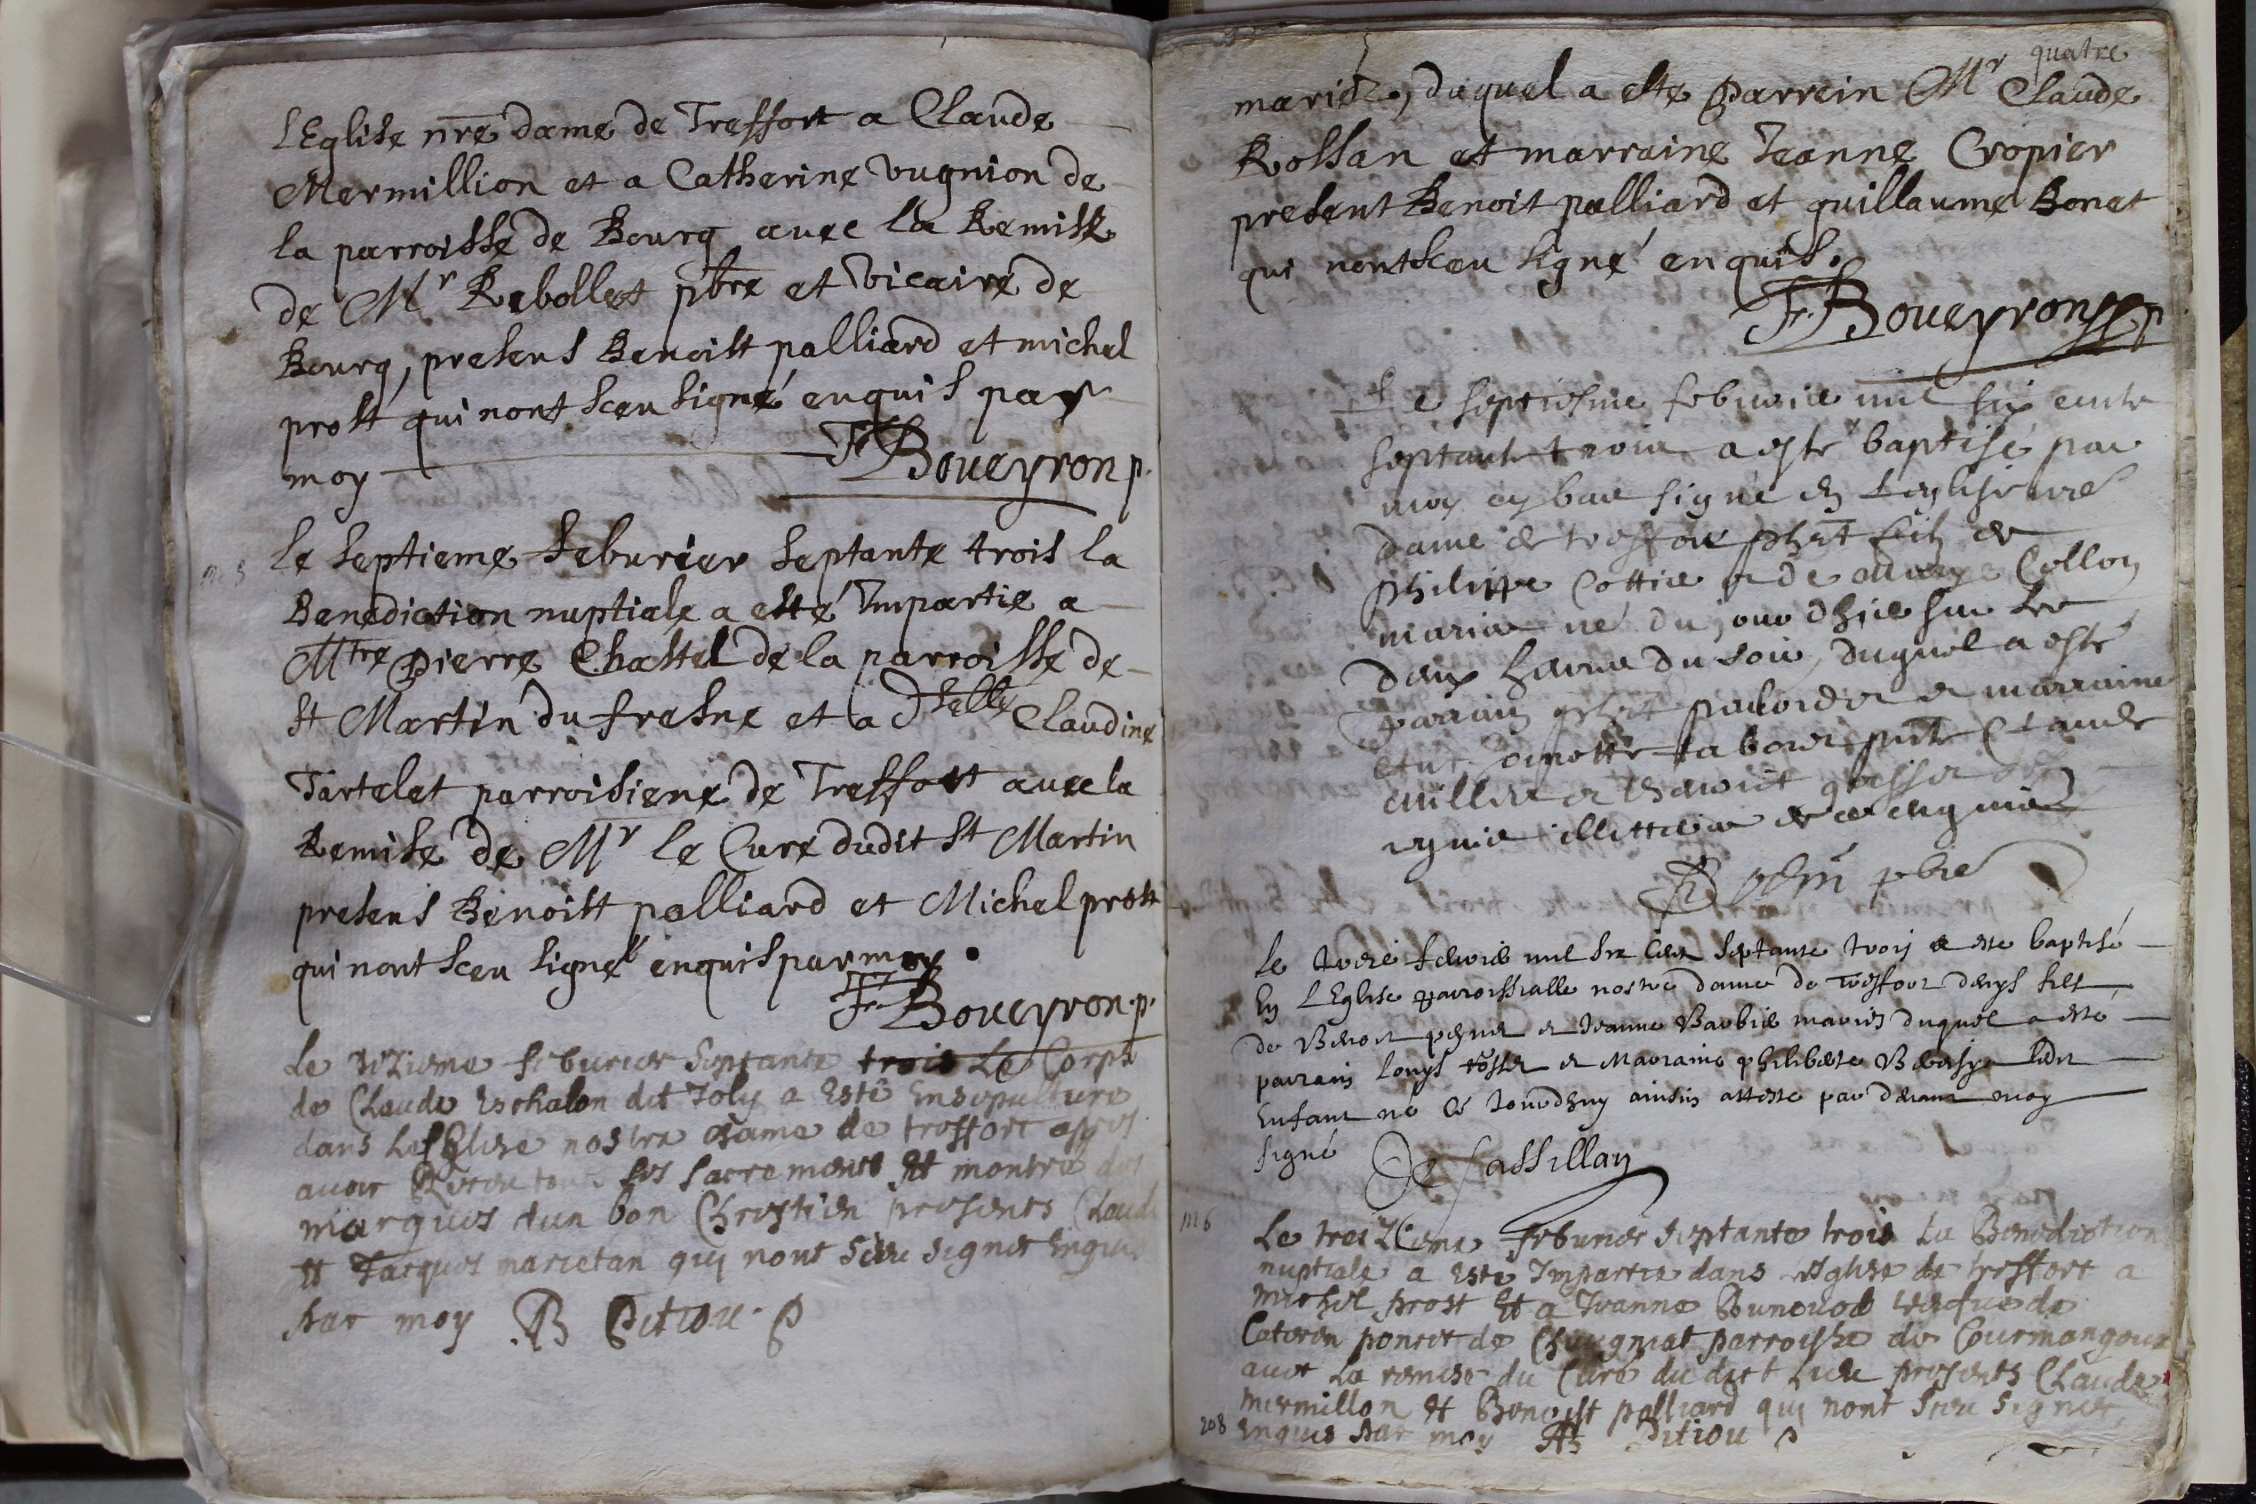 lEglise nre dame de Treffort a Claude
Mermillion et a Catherine vugnion de
la parroisse de Bourg avec la Remise
de Mr Rebollet pbre et vicaire de
Bourg, presens Benoist palliard et michel
prost qui nont sceu signé enquis par
moy Fr Boueyron p.
le septieme feburier septante trois la
Benediction nuptiale a esté Impartie a
Mtre Pierre Chastel de la parroisse de
st Martin du fresne et a dhelle Claudine
Tartelet parroisiene de Treffort avec la
Remise de Mr le Curé dudit st Martin
presens Benoist palliard et Michel prost
qui nont sceu signé enquis par moy.
Fr Boueyron p.
Le dizieme feburier septante trois Le Corps
de Claude Eschalon dit Joly a Esté Ensepulturé
dans LesEglise nostre dame de treffort apres
avoir Receu tous ses sacrements Et montré des
marques dun bon Chrestien presents Claude
Et Jacques marietan qui nont sceu signer Enquis
par moy B Pitiou p
quatre
mariez, duquel a este Parrein Mr Claude
Rossan et marraine Jeanne Cropier
present Benoit palliard et guillaume Bonet
qui nont sceu signé enquis.
Fr. Boueyron p
Le septiesme febvrier mil six cents
septante trois a este baptisé par
moy cy bas signé en Leglise nre
dame de treffort phbt filz de
Philippe Cottier et de Collon
mariez né du jour dhier sur les
deux heures du soir, duquel a esté
parrain et marraine
Claude
et Benoist
requis illitteres de ce enquis
pbre
Le treize febvrier mil six cent septante trois a este baptisé
En LEglise parroissialle nostre dame de treffort denys fils
de Benoit et Jeanne Barbier mariés duquel a esté
parrain Louys et Marraine philiberte ledit
Enfant né ce jourdhuy ainsin attesté par devant moy
signé De Fassillan
m 6
Le treizieme feburier septante trois La Benediction
nuptiale a Esté Impartie dans lesglise de treffort a
michel prost Et a Jeanne Bunevod vesfue de
Caterin poncet de Chevigniat parroisse de Courmangoux
avec La remise du Curé du dict Lieu presents Claude
mermillon Et Benoist palliard qui nont sceu signer
208 Enquis par moy B Pitiou p